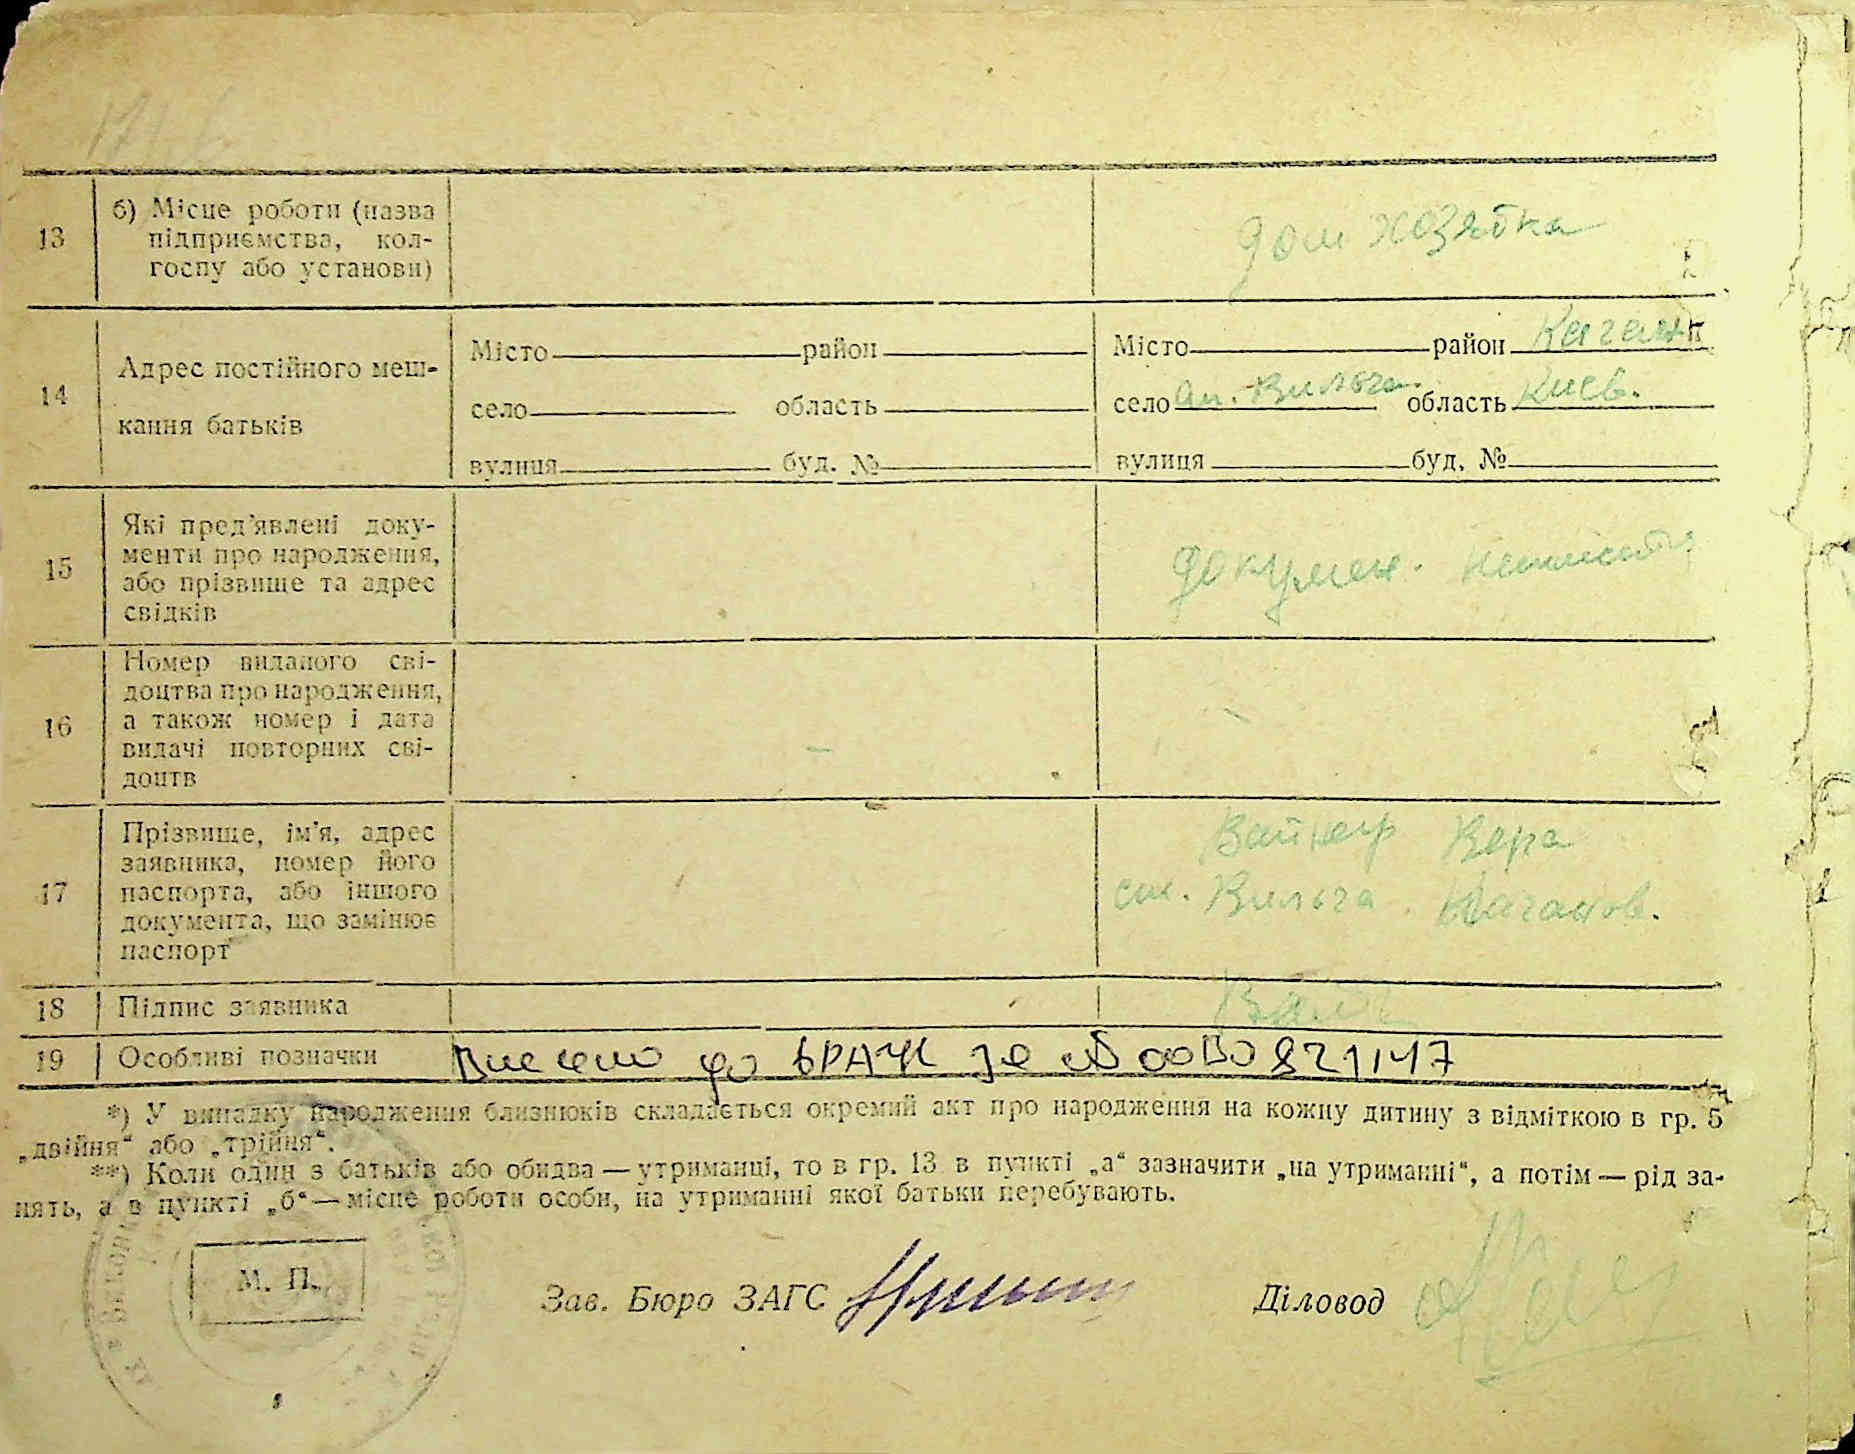 13
б) Місце роботи (назва
підприємства, кол-
госпу або установи)
дом хозяйка
14
Адрес постійного меш-
кання батьків
Місто район
село область
вулиця буд. №
Місто район
село Вильча область Киев.
вулиця буд. №
15
Які пред'явлені доку-
менти про народження,
або прізвище та адрес
свідків
докумен.
16
Номер виданого сві-
доцтва про народження,
а також номер і дата
видачі повторних сві-
доцтв
17
Прізвище, ім'я, адрес
заявника, номер його
паспорта, або іншого
документа, що замінює
паспорт
Вайнер Вера
ст. Вильча Каганов.
18
Підпис заявника
19
Особливі позначки
Внесено до ДРАЦС за № 00
*) У випадку народження близнюків складається окремий акт про народження на кожну дитину з відміткою в гр. 5
„двійня“ або „трійня“.
**) Коли один з батьків або обидва — утриманці, то в гр. 13 в пункті „а“ зазначити „на утриманні“, а потім — рід за-
нять, а в пункті „б“ — місце роботи особи, на утриманні якої батьки перебувають.
М. П.
Зав. Бюро ЗАГС
Діловод